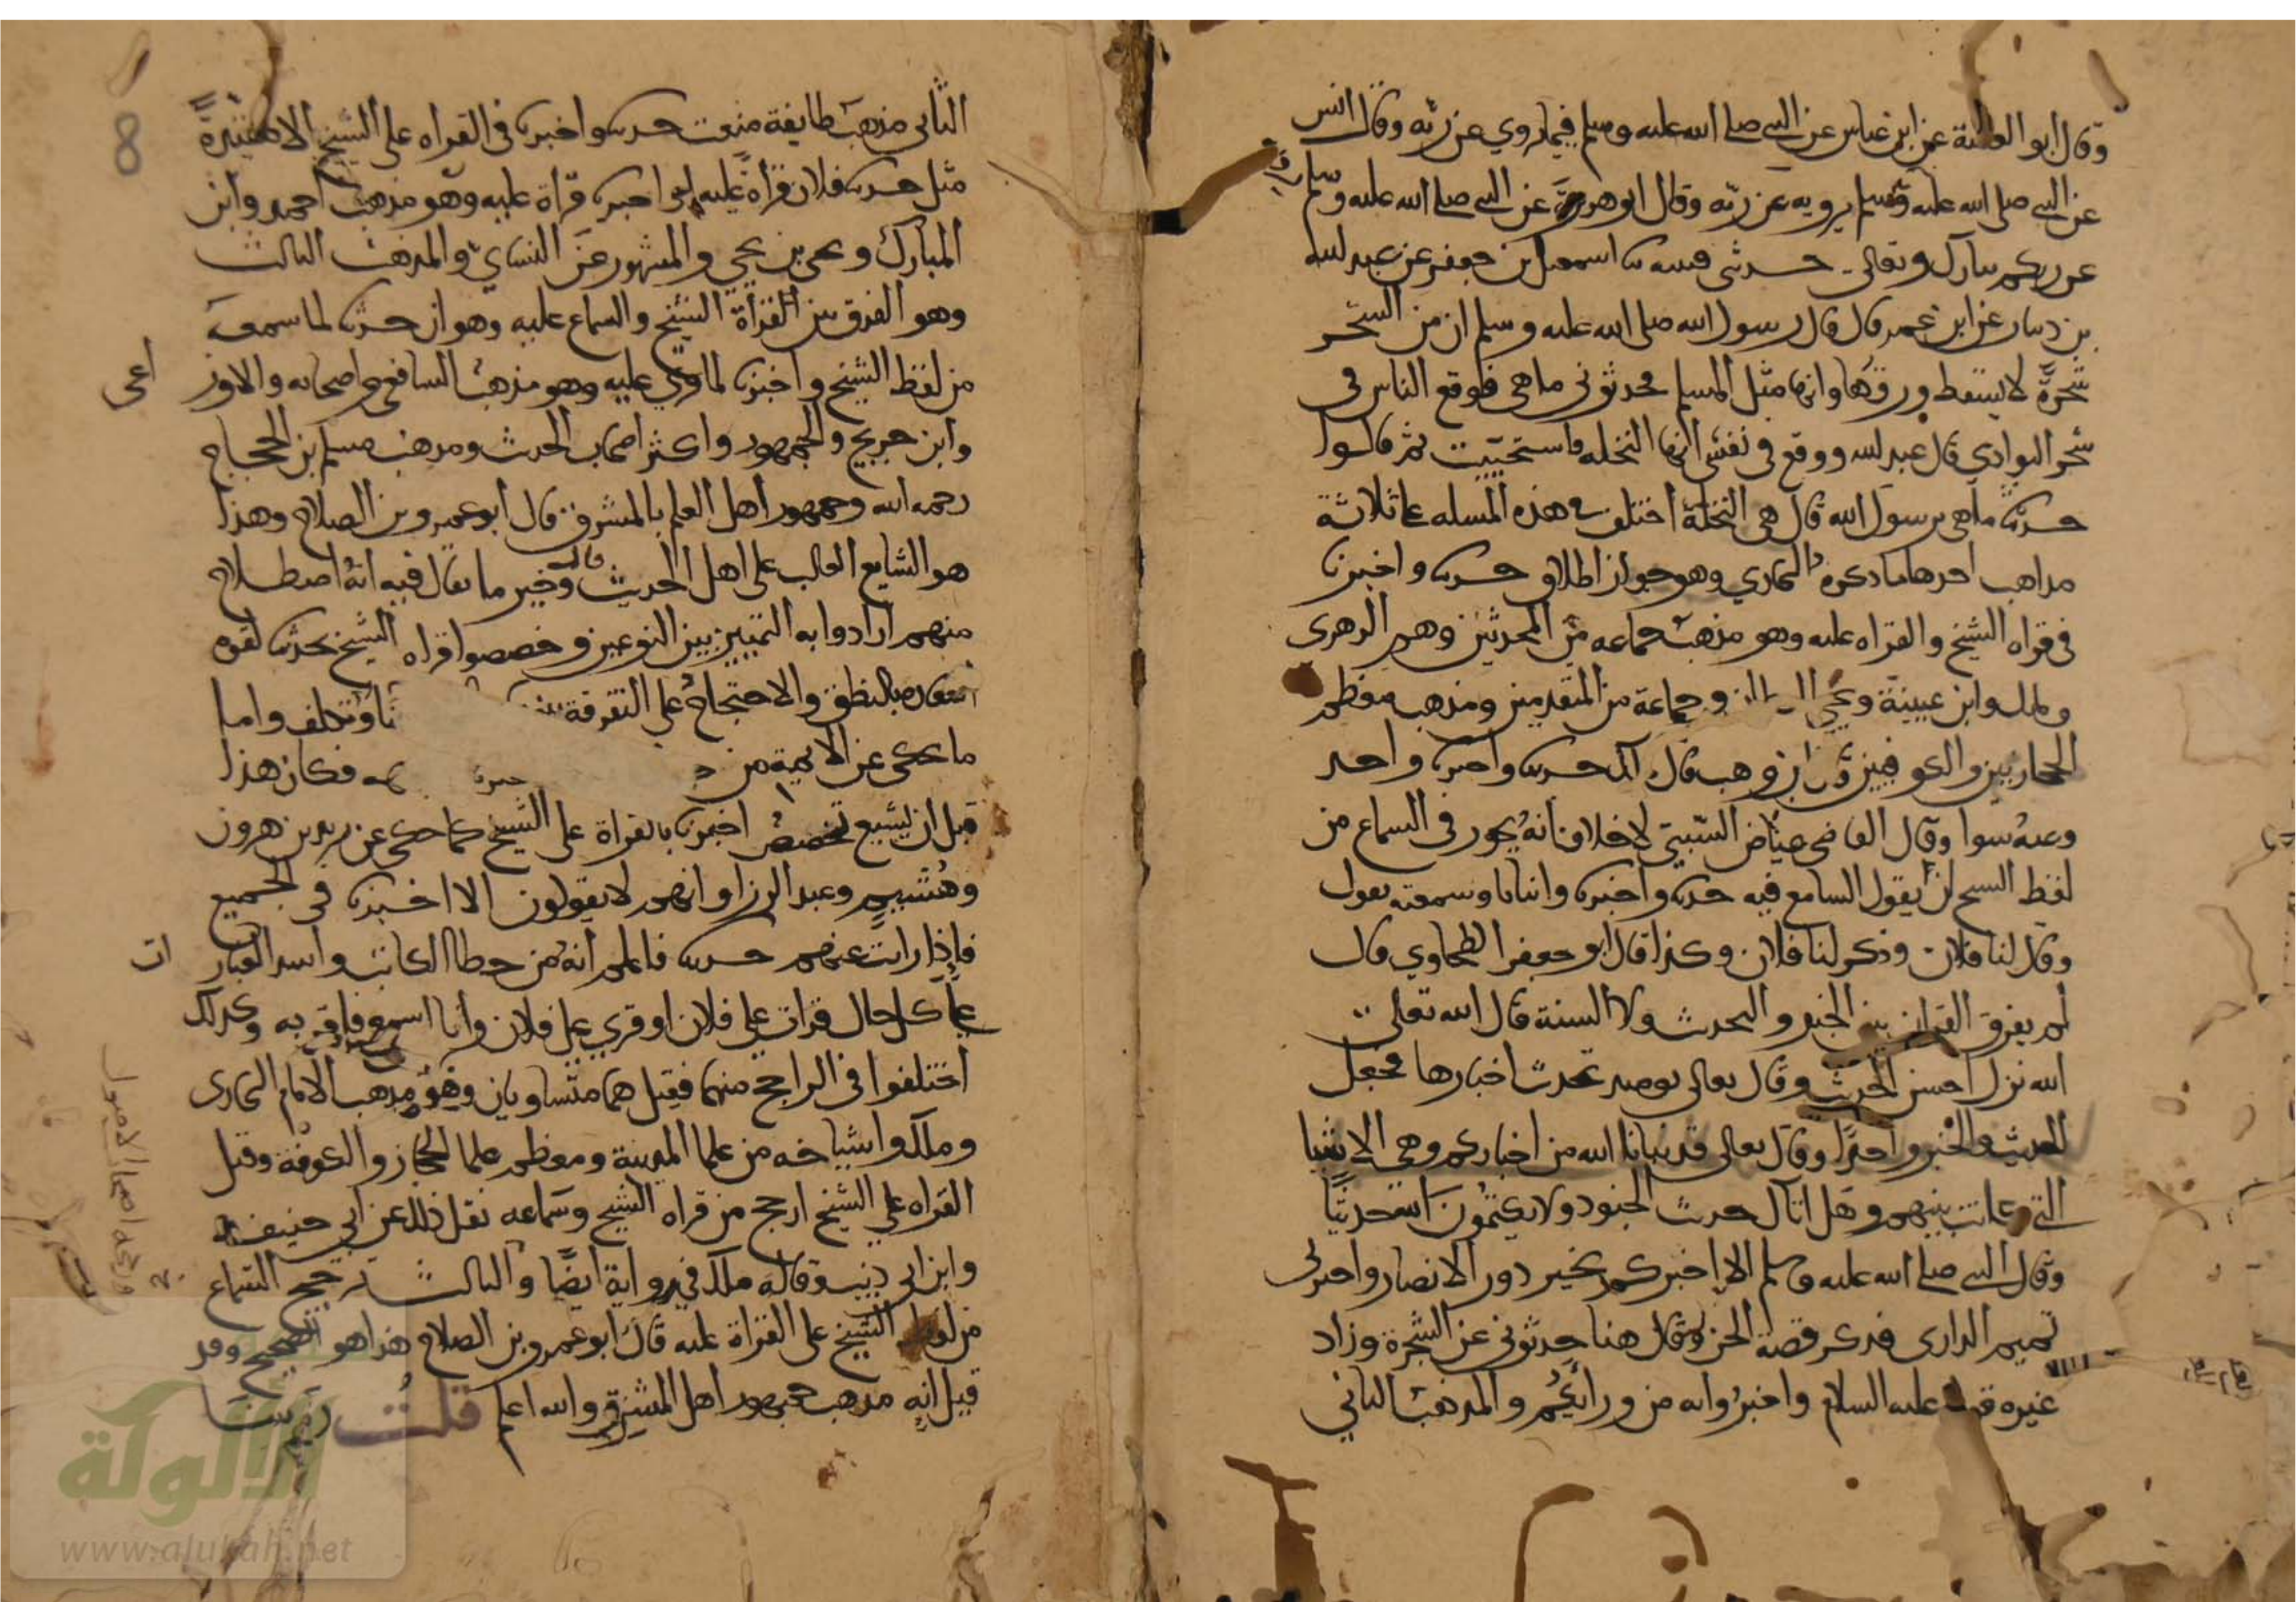 وقال ابو العالية عن ابن عباس عن النبي صلى الله عليه وسلم فيما يروي عن ربه وقال انس
عن النبي صلى الله عليه وسلم يرويه عن ربه وقال ابو هريرة عن النبي صلى الله عليه وسلم
عن ربكم تبارك وتعالى حدثني قتيبه ثنا اسمعيل بن جعفر عن عبد الله
بن دينار عن ابن عمر قال قال رسول الله صلى الله عليه وسلم ان من الشجر
شجرة لا يسقط ورقها وانها مثل المسلم فحدثوني ما هي فوقع الناس في
شجر البوادي قال عبد الله ووقع في نفسي انها النخله فاستحييت ثم قالوا
حدثنا ما هي يرسول الله قال هي النخلة اختلف في هذه المسله على ثلاثة
مذاهب احدها ما ذكره البخاري وهو جواز اطلاق حدثنا واخبرنا
في قراه الشيخ والقراه عليه وهو مذهب جماعه من المحدثين وهم الزهري
وملك وابن عيينة ويحيى وجماعة من المتقدمين ومذهب معظم
الحجازيين والكوفيين ابن وهب قال حدثنا واخبرنا واحد
وعنه سوا وقال القاضي عياض السبتي لا خلاف انه يجوز في السماع من
لفظ الشيخ ان يقول السامع فيه حدثنا واخبرنا وانبانا وسمعته يقول
وقال لنا فلان وذكر لنا فلان وكذا قال ابو جعفر الطحاوي قال
لم يفرق القران بين الخبر والحديث ولا السنة قال الله تعالى
الله نزل احسن الحديث وقال تعالى يوميذ تحدث اخبارها فجعل
الحديث والخبر واحدا وقال تعالى قد نبانا الله من اخباركم وهي الاشيا
التي كانت بينهم وهل اتاك حديث الجنود ولا يكتمون الله حديثا
وقال النبي صلى الله عليه وسلم الا اخبركم بخير دور الانصار واخبرني
تميم الداري فذكر قصة الجن وقال هنا حدثوني عن الشجرة وزاد
غيره عليه السلام واخبروا به من ورائكم والمذهب الثاني
الثاني مذهب طايفة منعت حدثنا واخبرنا في القراه على الشيخ الا مقيدة
مثل حدثنا فلان قراة عليه او اخبرنا قراة عليه وهو مذهب احمد وابن
المبارك ويحيى بن يحيى والمشهور عن النساي والمذهب الثالث
وهو الفرق بين القراة الشيخ والسماع عليه وهو ان حدثنا لما سمعه
من لفظ الشيخ واخبرنا لما قري عليه وهو مذهب الشافعي واصحابه والاوز
اعي
وابن جريج والجمهور واكثر اصحاب الحديث ومذهب مسلم بن الحجاج
رحمه الله وجمهور اهل العلم بالمشرق قال ابو عمرو بن الصلاح وهذا
هو الشايع الغالب على اهل الحديث قال وخير ما يقال فيه انه اصطلاح
منهم ارادوا به التمييز بين النوعين وخصصوا قراه الشيخ بحدثنا لقوه
اشعاره بالنطق والاحتجاج على التفرقة واما
ما حكي عن الايمة من فكان هذا
قبل ان يشيع تخصيص اخبرنا بالقراة على الشيخ كما حكي عن يزيد بن هرون
وهشيم وعبد الرزاق انهم لا يقولون الا اخبرنا في الجميع
فاذا رايت عنهم حدثنا فاعلم انه من خطا الكاتب واسد العبار
ات
على كل حال قرات على فلان او قري على فلان وانا اسمع فاقر به وكذلك
اختلفوا في الراجح منهما فقيل هما متساويان وهو مذهب الامام البخاري
وملك واشياخه من علما المدينة ومعظم علما الحجاز والكوفة وقيل
القراه على الشيخ ارجح من قراه الشيخ وسماعه نقل ذلك عن ابي حنيفه
وابن ابي ذيب وقاله ملك في رواية ايضا والثالث ترجيح السماع
من لفظ الشيخ على القراة عليه قال ابو عمرو بن الصلاح هذا هو الصحيح وقد
قيل انه مذهب جمهور اهل المشرق والله اعلم قلت
الألوكة
www.alukah.net